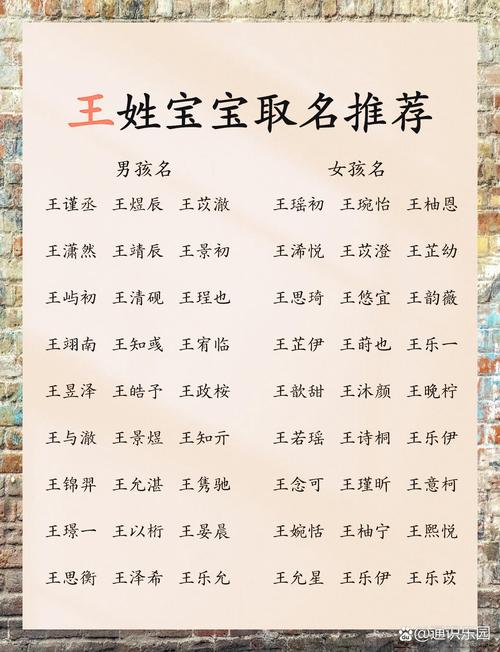 王姓宝宝取名推荐
男孩名 女孩名
王谨丞 王煜辰 王苡澈 王瑶初 王琬怡 王柚恩
王潇然 王靖辰 王景初 王浠悦 王苡澄 王芷幼
王屿初 王清砚 王珵也 王思琦 王悠宜 王韵薇
王翊南 王知彧 王宥临 王芷伊 王莳也 王乐一
王昱泽 王皓予 王政桉 王歆甜 王沐颜 王晚柠
王与澈 王景煜 王知亓 王若瑶 王诗桐 王乐伊
王锦羿 王允湛 王隽驰 王念可 王瑾昕 王意柯
王璟一 王以桁 王晏晨 王婉恬 王柚宁 王熙悦
王思衡 王泽希 王乐允 王允星 王乐伊 王乐苡
@通识乐园